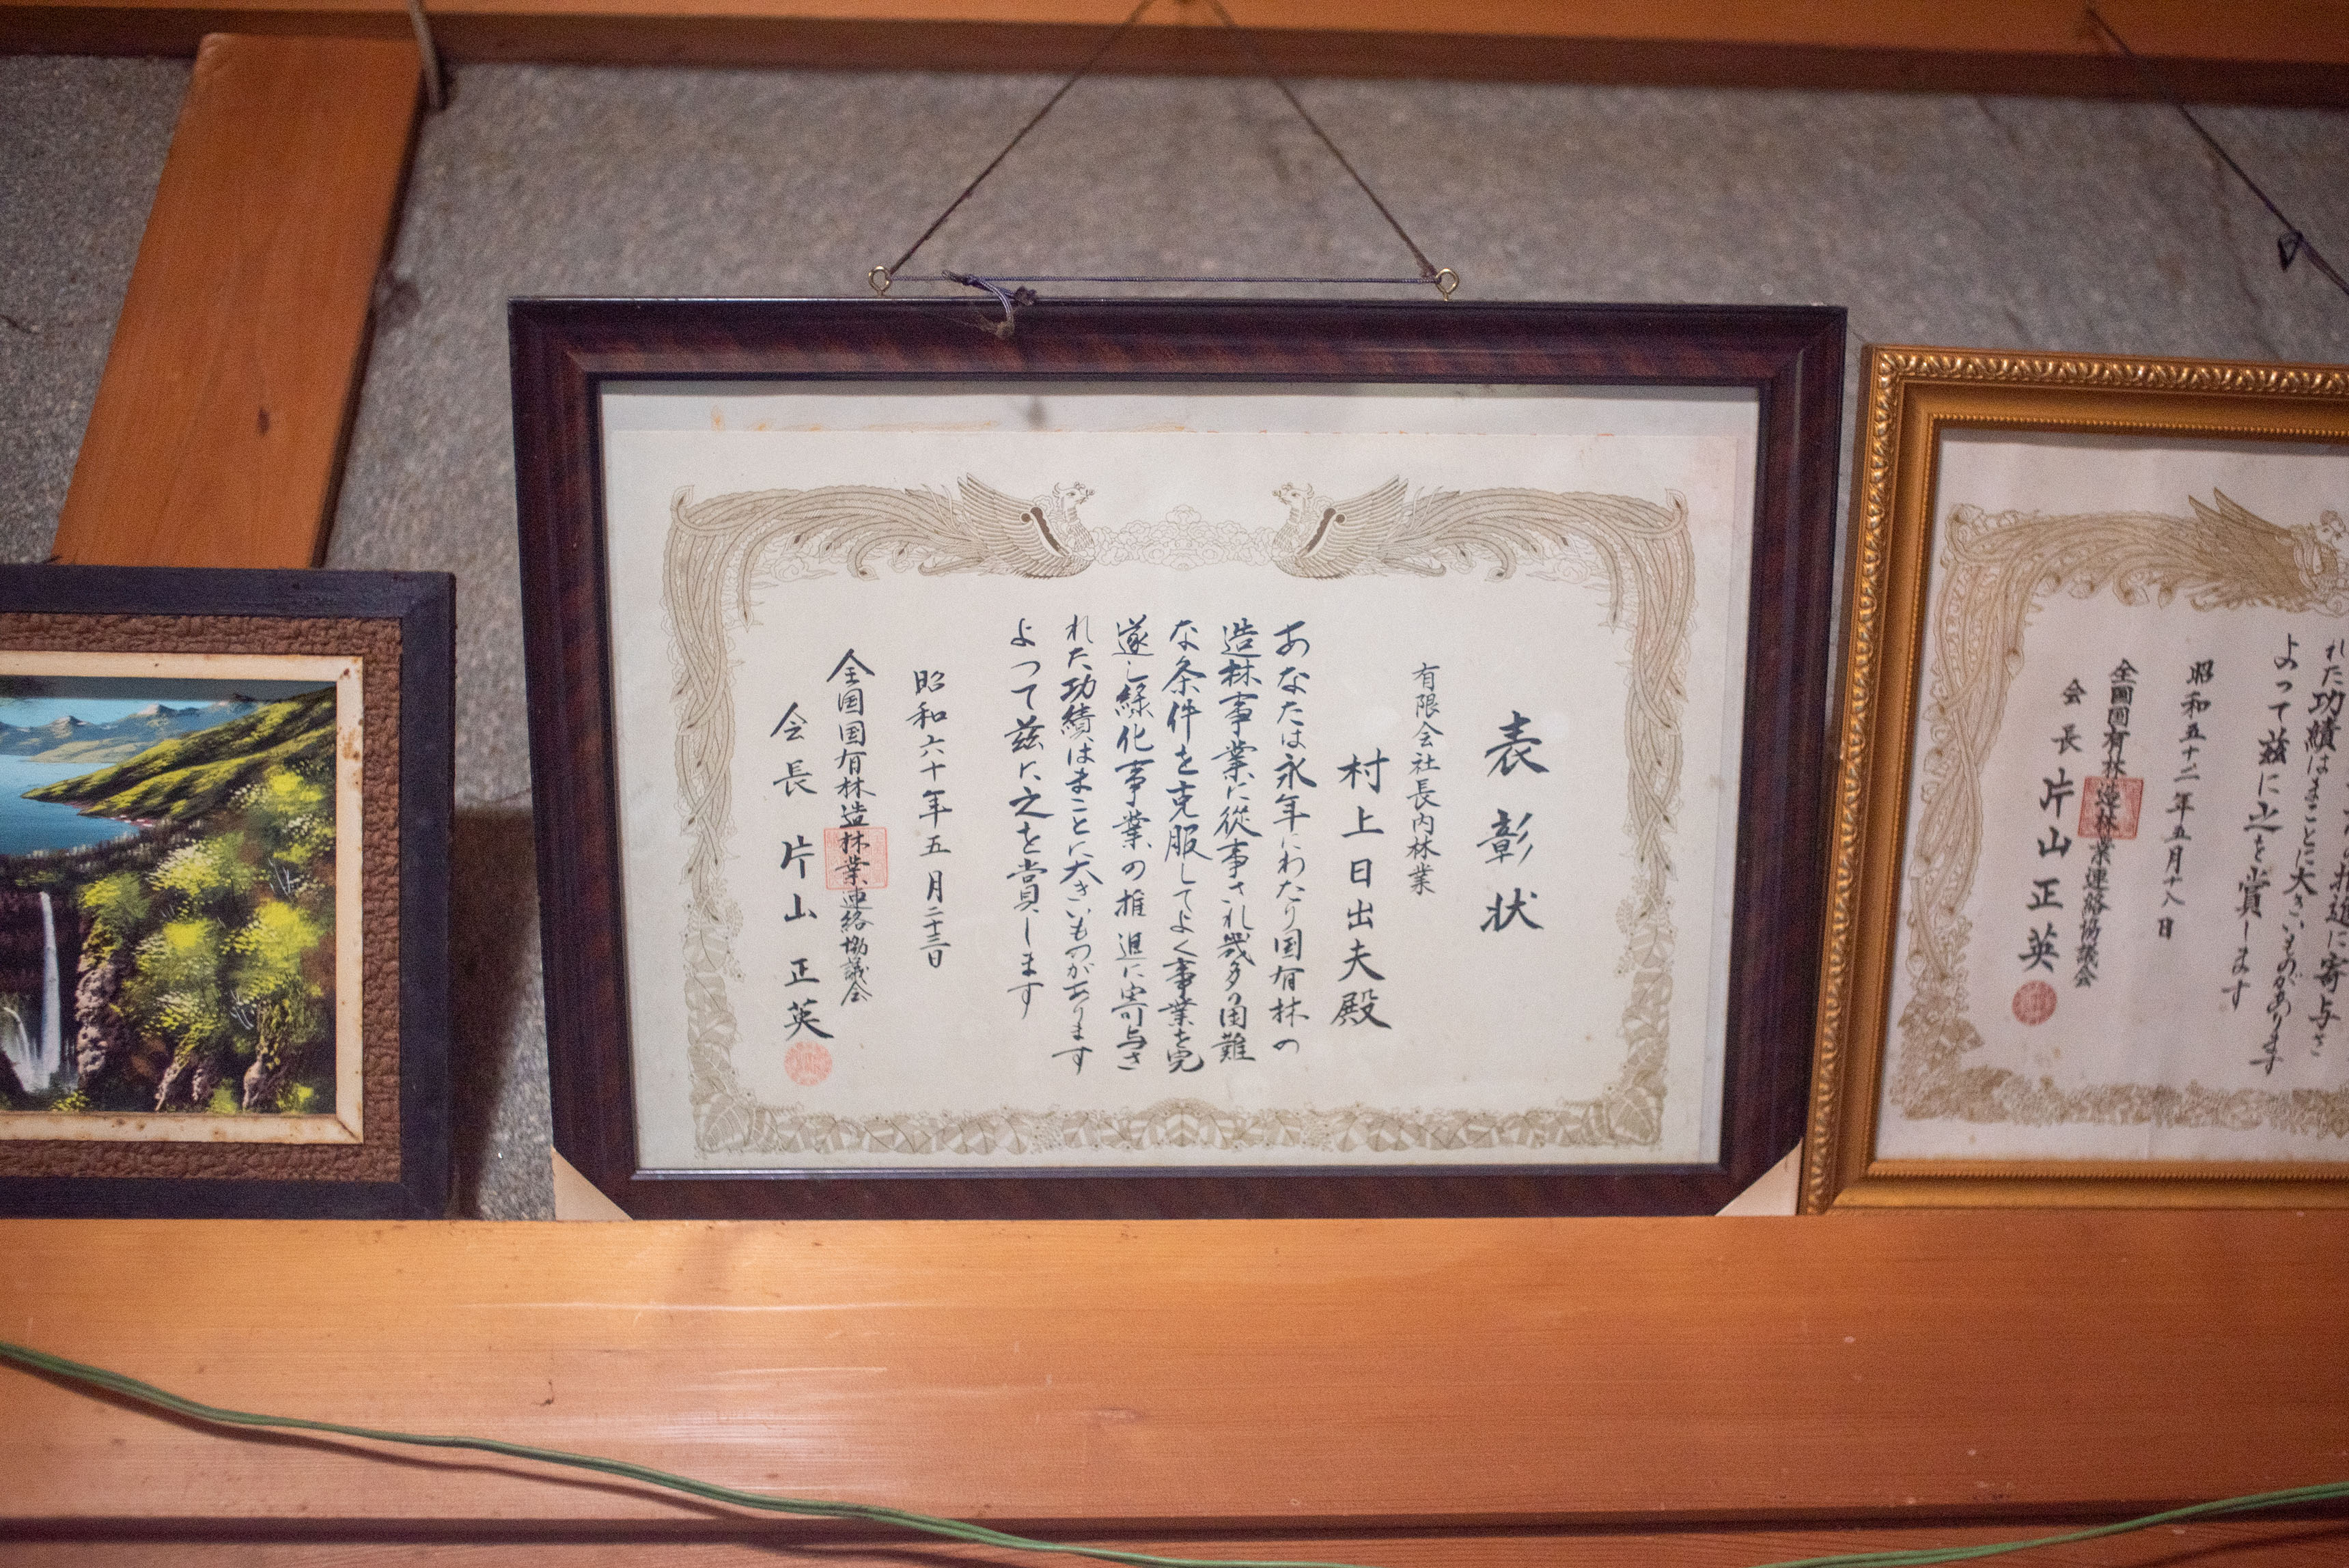 表彰状
有限会社長内林業
村上日出夫殿
あなたは永年にわたり国有林の
造林事業に従事され幾多の困難
な条件を克服してよく事業を完
遂し緑化事業の推進に寄与さ
れた功績はまことに大きいものがあります
よって茲に之を賞します
昭和六十年五月二十三日
全国国有林造林業連絡協議会
会長 片山正英
推進に寄与さ
れた功績はまことに大きいものがあります
よって茲に之を賞します
昭和五十二年五月十八日
全国国有林造林業連絡協議会
会長 片山正英